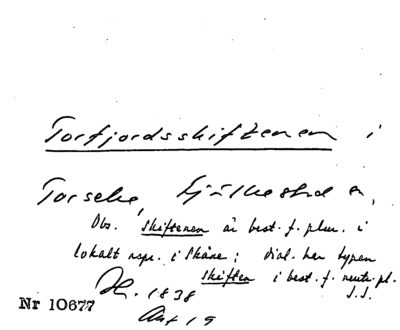 Torfjordsskiftenen i
Torsebe, Fjälkestad sn,
Obs. skiftenen är best. f. plur. i
lokalt repr. i Skåne; dial. har typen
skiften i best. f. neutr. pl.
J.S.
1838
Nr 10677
Akt 19